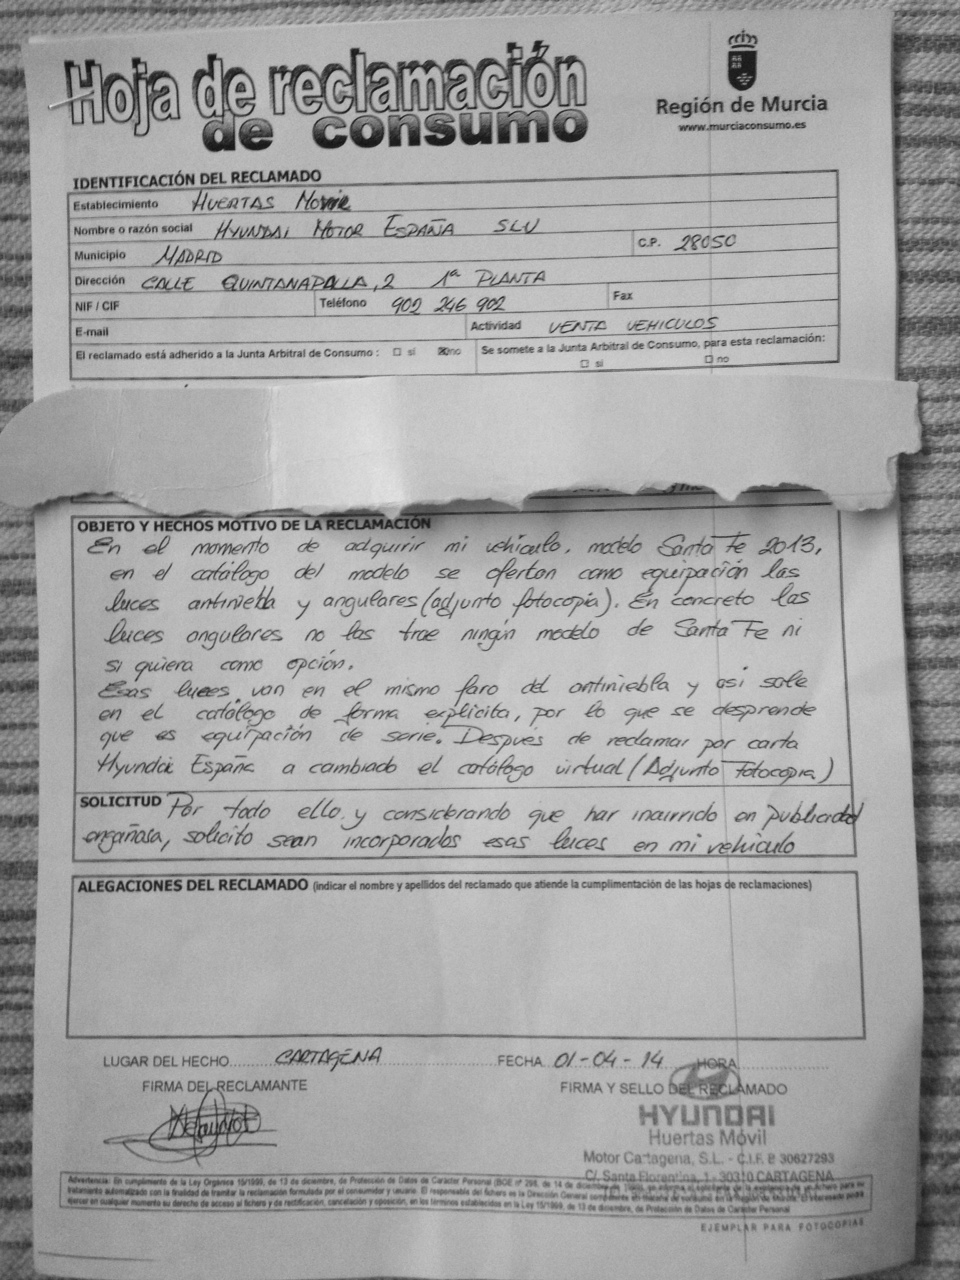 Hoja de reclamación
de consumo
Región de Murcia
www.murciaconsumo.es
IDENTIFICACIÓN DEL RECLAMADO
Establecimiento HUERTAS
Nombre o razón social HYUNDAI MOTOR ESPAÑA SLU
Municipio MADRID C.P. 28050
Dirección CALLE QUINTANAPALLA, 2 1ª PLANTA
NIF / CIF Teléfono 902 246 902 Fax
E-mail Actividad VENTA VEHICULOS
El reclamado está adherido a la Junta Arbitral de Consumo : si no Se somete a la Junta Arbitral de Consumo, para esta reclamación:
si no
OBJETO Y HECHOS MOTIVO DE LA RECLAMACIÓN
En el momento de adquirir mi vehículo, modelo Santa Fe 2013,
en el catálogo del modelo se ofertan como equipación las
luces antiniebla y angulares (adjunto fotocopia). En concreto las
luces angulares no las trae ningún modelo de Santa Fe ni
si quiera como opción.
Esas luces van en el mismo faro del antiniebla y asi sale
en el catálogo de forma explícita, por lo que se desprende
que es equipación de serie. Después de reclamar por carta
Hyundai España a cambiado el catálogo virtual (Adjunto fotocopia)
SOLICITUD Por todo ello y considerando que han incurrido en publicidad
engañosa, solicito sean incorporados esas luces en mi vehículo
ALEGACIONES DEL RECLAMADO (indicar el nombre y apellidos del reclamado que atiende la cumplimentación de las hojas de reclamaciones)
LUGAR DEL HECHO CARTAGENA FECHA 01-04-14 HORA
FIRMA DEL RECLAMANTE FIRMA Y SELLO DEL RECLAMADO
HYUNDAI
Huertas Móvil
Motor Cartagena, S.L. - C.I.F. B 30627293
C/ Santa Florentina, 1 - 30310 CARTAGENA
Advertencia: En cumplimiento de la Ley Orgánica 15/1999, de 13 de diciembre, de Protección de Datos de Carácter Personal (BOE nº 298, de 14 de diciembre
tratamiento automatizado con la finalidad de tramitar la reclamación formulada por el consumidor y usuario. El responsable del fichero es la Dirección General
ejercer su derecho de acceso al fichero y de rectificación, cancelación y oposición, en los términos establecidos en la Ley 15/1999, de 13 de diciembre, de Protección de Datos de Carácter Personal
EJEMPLAR PARA FOTOCOPIAS